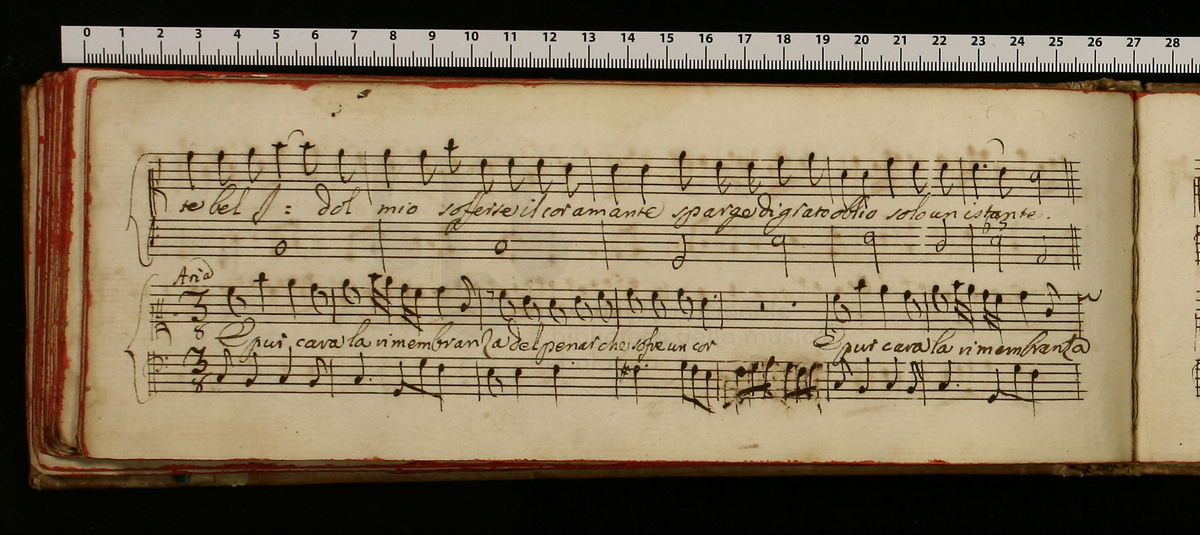 0 1 2 3 4 5 6 7 8 9 10 11 12 13 14 15 16 17 18 19 20 21 22 23 24 25 26 27 28
te bel I: dol mio soferse il cor amante sparge di grato oblio solo un istante.
Aria
3 8
E pur cara la rimembranza del penar che sofre un cor E pur cara la rimembranza
3 8